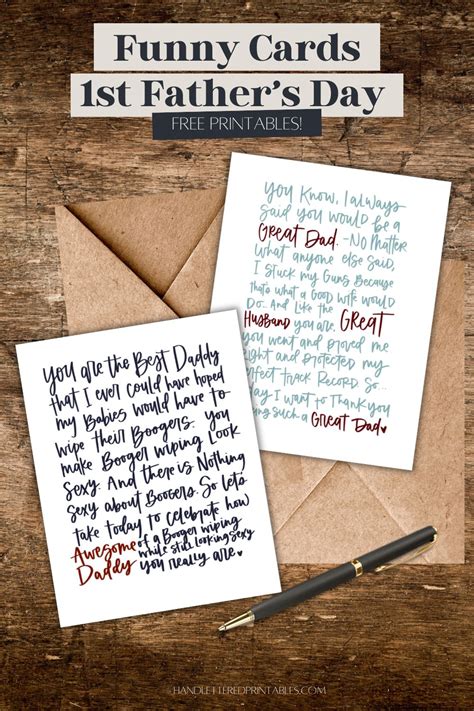 Funny Cards
1st Father's Day
FREE PRINTABLES!
You Know, I always
said you would be a
Great Dad. -No Matter
what anyone else said,
I stuck my Guns Because
that's what a Good wife would
Do. And Like the Great
Husband you are,
you went and proved me
right and protected my
perfect track Record. So...
I want to Thank you
such a Great Dad
you are the Best Daddy
that I ever could have hoped
my Babies would have to
wipe their Boogers. you
make Booger wiping Look
Sexy. And there is Nothing
sexy about Boogers. So let's
take today to celebrate how
Awesome of a Booger wiping
Daddy while still looking sexy
you really are
HANDLETTEREDPRINTABLES.COM